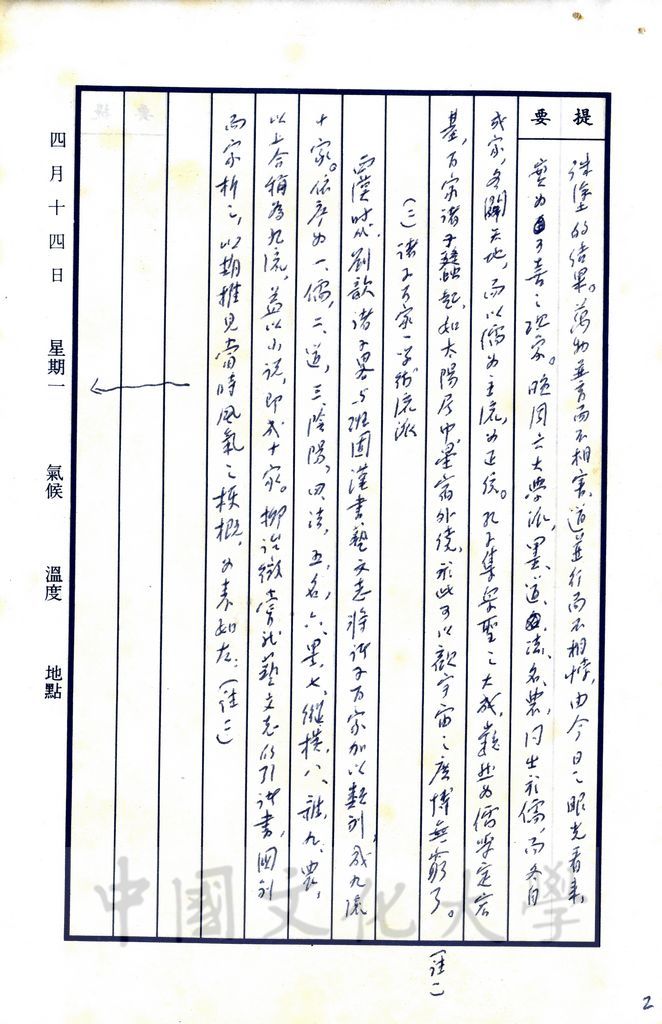 提要
誅塗的結果。萬物並育而不相害，道並行而不相悖，由今日之眼光看來，
實為可喜之現象。晚周六大學派，墨、道、法、名、農，同出於儒，而各自
成家，各闢天地，而以儒為主流，為正統。孔子集羣聖之大成，巍然為儒學定宏
基，百家諸子蠭起，如太陽居中，星宿外繞，於此可以觀宇宙之廣博無窮了。
（註一）
（二）諸子百家—學術流派
西漢時代，劉歆諸子畧與班固漢書藝文志將諸子百家加以類別，成九流
十家。依序為一、儒，二、道，三、陰陽，四、法，五、名，六、墨，七、縱橫，八、雜，九、農，
以上合稱為九流，益以小說，即成十家。柳詒徵嘗就藝文志所引諸書，國別
而家析之，以期推見當時風氣之梗概，如表如左：（註二）
四月十四日 星期一 氣候 溫度 地點
中國文化大學
2